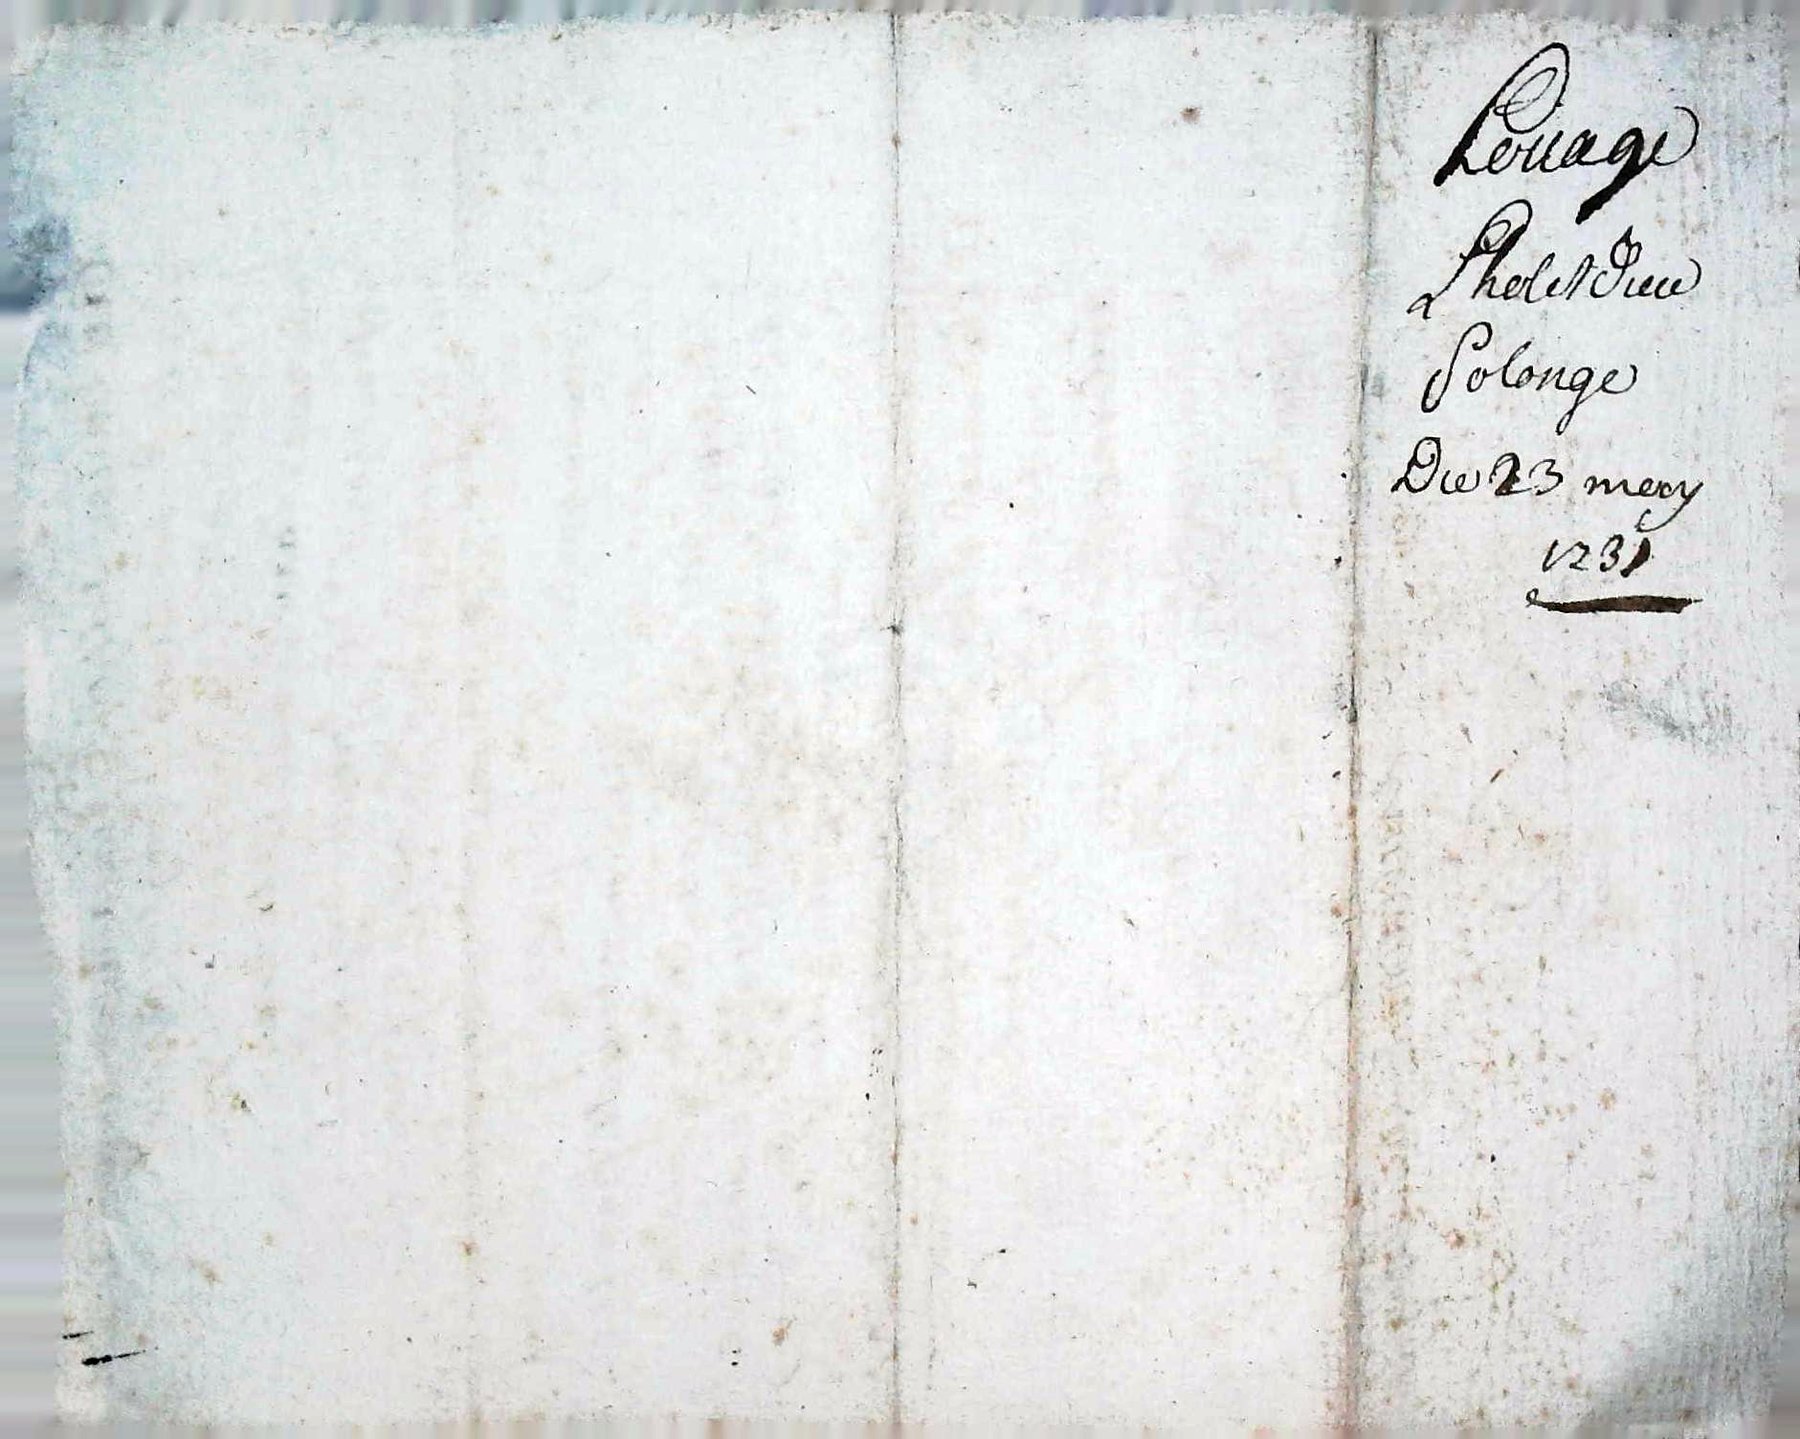 Louage
Lholet Diue
Solonge
Du 23 mery
1731